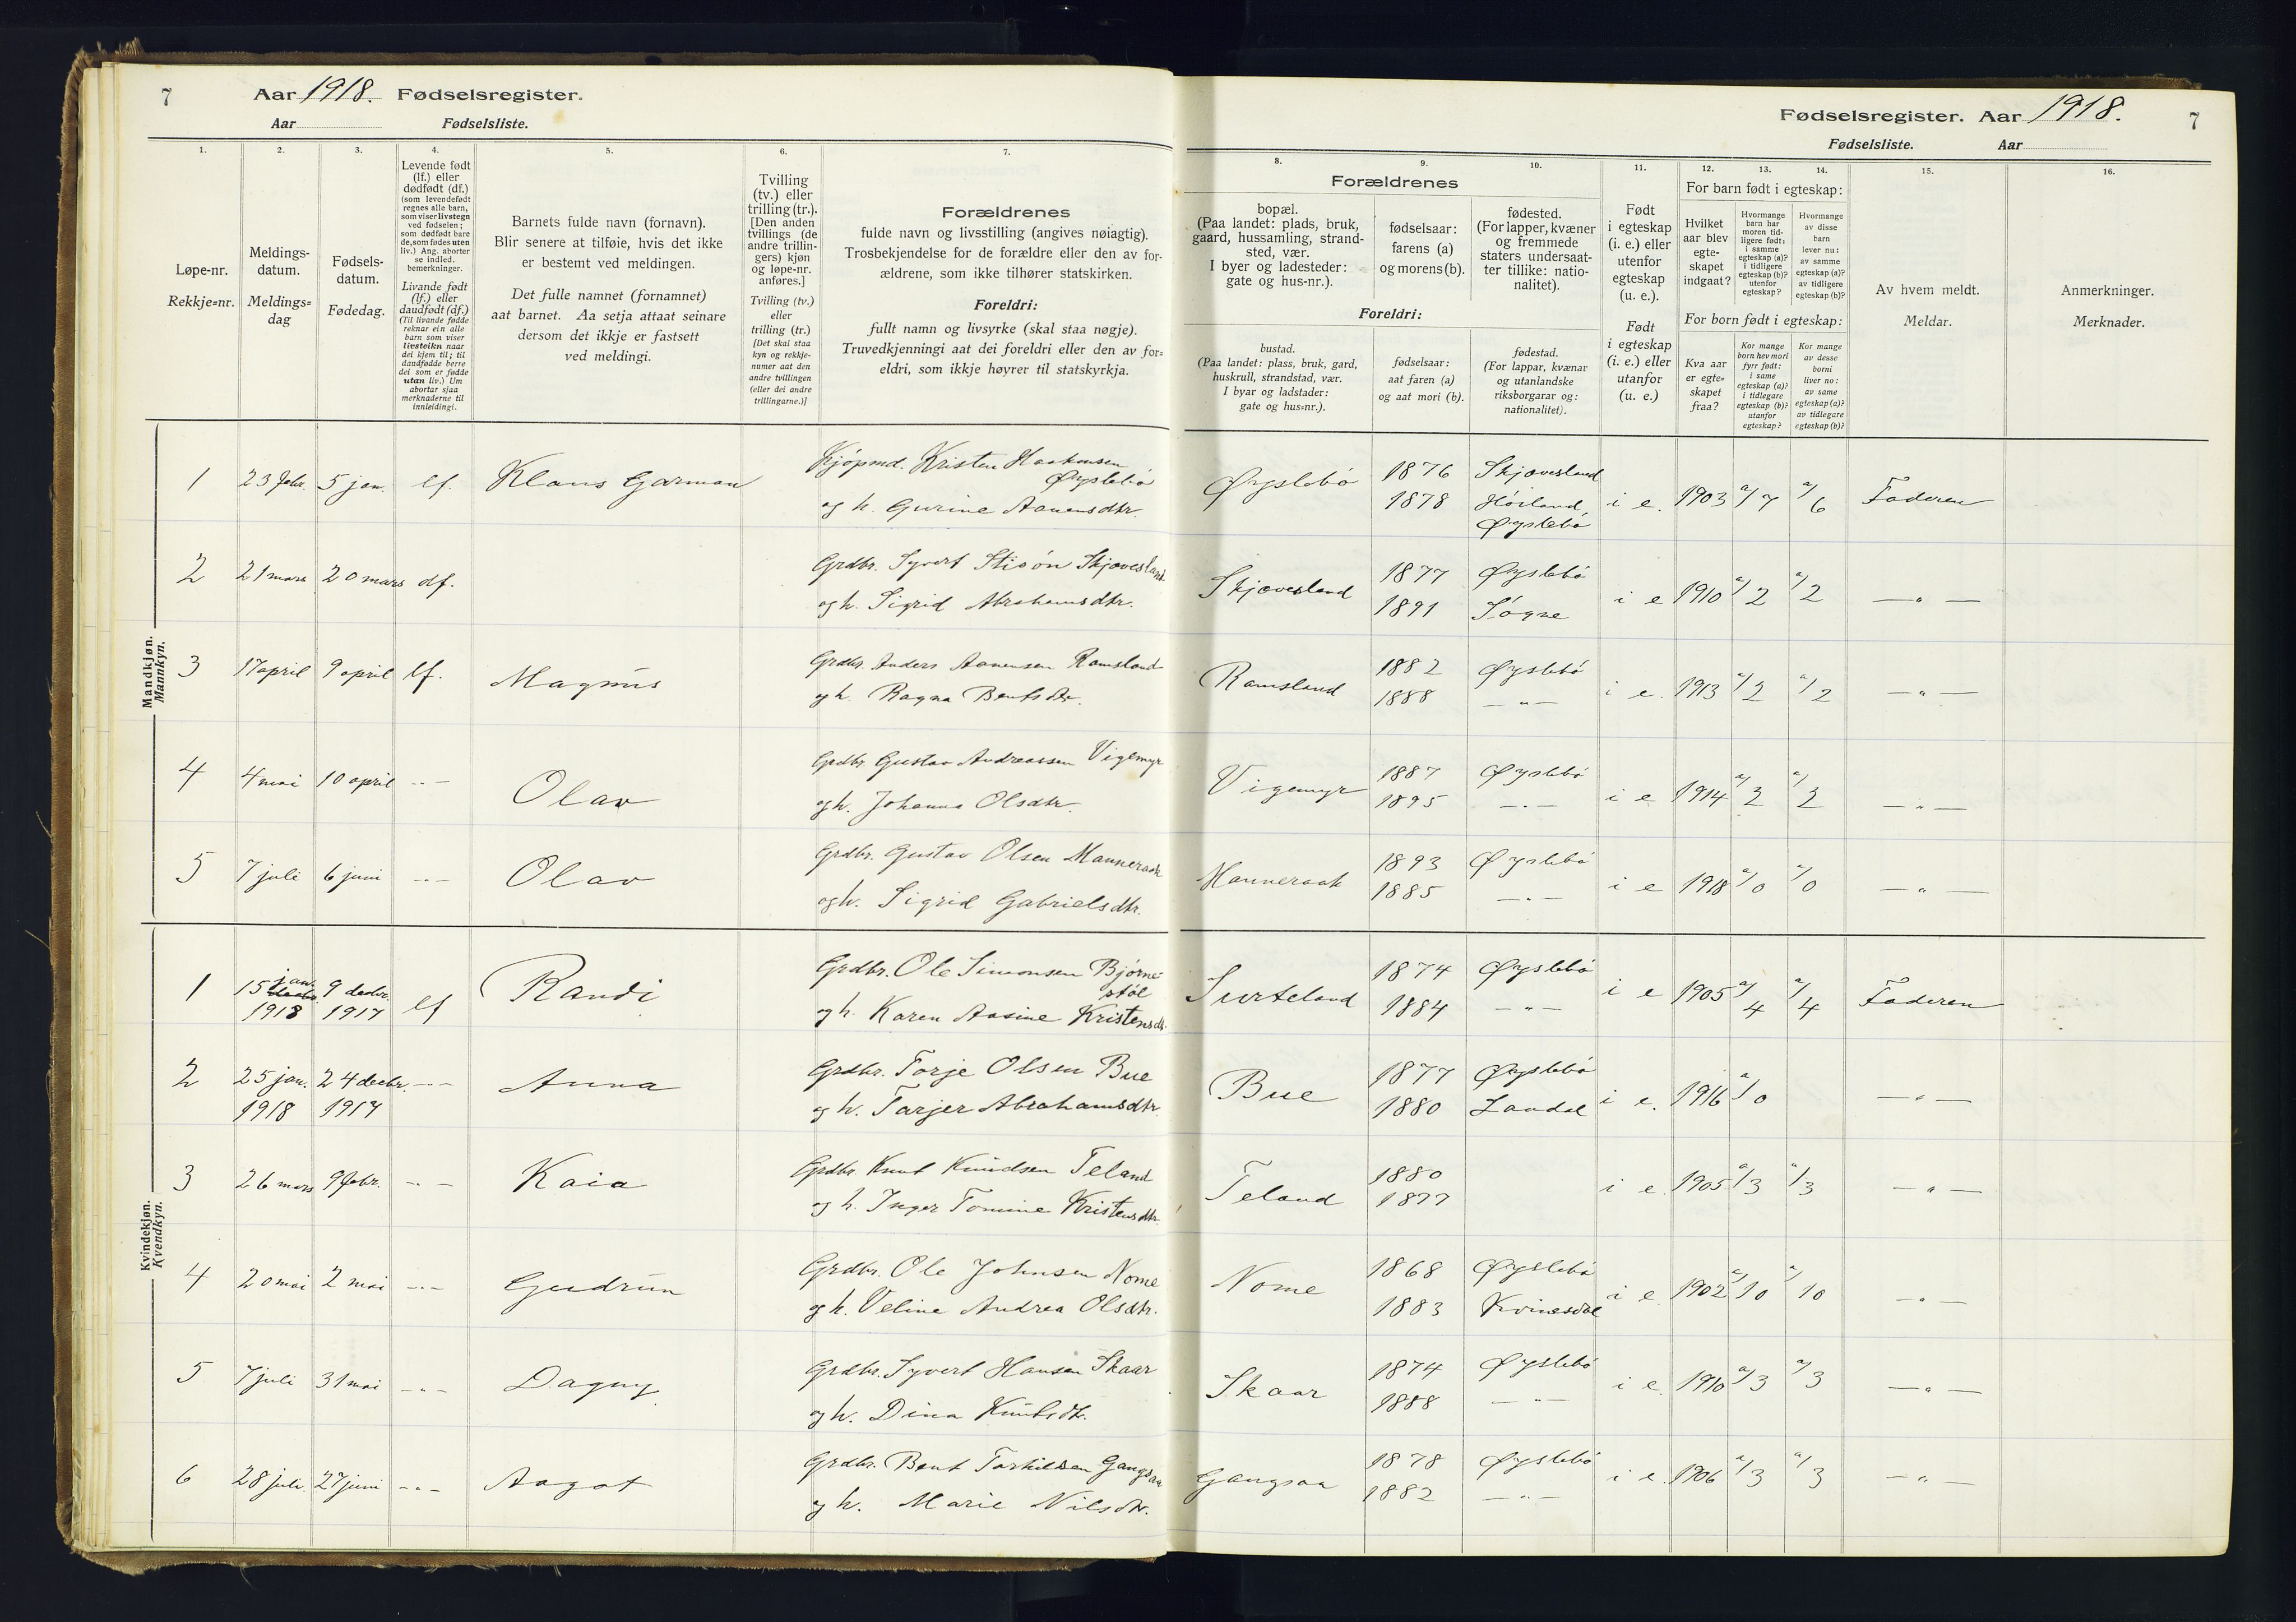 7 Aar 1918. Fødselsregister.
Aar Fødselsliste.
Fødselsregister. Aar 1918. 7
Fødselsliste. Aar
1. 2. 3. 4. 5. 6. 7. 8. 9. 10. 11. 12. 13. 14. 15. 16.
Løpe-nr.
Rekkje=nr.
Meldings-
datum.
Meldings=
dag
Fødsels-
datum.
Fødedag.
Levende født
(lf.) eller
dødfødt (df.)
(som levendefødt
regnes alle barn,
som viser livstegn
ved fødselen;
som dødfødt bare
de, som fødes uten
liv.) Ang. aborter
se indled.
bemerkninger.
Livande født
(lf.) eller
daudfødt (df.)
(Til livande fødde
reknar ein alle
barn som viser
livsteikn naar
dei kjem til; til
daudfødde berre
dei som er fødde
utan liv.) Um
abortar sjaa
merknaderne til
innleidingi.
Barnets fulde navn (fornavn).
Blir senere at tilføie, hvis det ikke
er bestemt ved meldingen.
Det fulle namnet (fornamnet)
aat barnet. Aa setja attaat seinare
dersom det ikkje er fastsett
ved meldingi.
Tvilling
(tv.) eller
trilling (tr.).
[Den anden
tvillings (de
andre trillin-
gers) kjøn
og løpe-nr.
anføres.]
Tvilling (tv.)
eller
trilling (tr.)
[Det skal staa
kyn og rekkje-
numer aat den
andre tvillingen
(eller dei andre
trillingarne.)]
Forældrenes
fulde navn og livsstilling (angives nøiagtig).
Trosbekjendelse for de forældre eller den av for-
ældrene, som ikke tilhører statskirken.
Foreldri:
fullt namn og livsyrke (skal staa nøgje).
Truvedkjenningi aat dei foreldri eller den av for=
eldri, som ikkje høyrer til statskyrkja.
Forældrenes
bopæl.
(Paa landet: plads, bruk,
gaard, hussamling, strand-
sted, vær.
I byer og ladesteder:
gate og hus-nr.).
fødselsaar:
farens (a)
og morens (b).
fødested.
(For lapper, kvæner
og fremmede
staters undersaat-
ter tillike: natio-
nalitet).
Foreldri:
bustad.
(Paa landet: plass, bruk, gard,
huskrull, strandstad, vær.
I byar og ladstader:
gate og hus=nr.).
fødselsaar:
aat faren (a)
og aat mori (b).
fødestad.
(For lappar, kvænar
og utanlandske
riksborgarar og:
nationalitet).
Født
i egteskap
(i. e.) eller
utenfor
egteskap
(u. e.).
Født
i egteskap
(i. e.) eller
utanfor
egteskap
(u. e.)
For barn født i egteskap:
Hvilket
aar blev
egte-
skapet
indgaat?
Hvormange
barn har
moren tid-
ligere født:
i samme
egteskap (a)?
i tidligere
egteskap (b)?
utenfor
egteskap?
Hvormange
av disse
barn
lever nu:
av samme
egteskap (a)?
av tidligere
egteskap (b)?
For born født i egteskap:
Kva aar
er egte=
skapet
fraa?
Kor mange
born hev mori
fyrr født:
i same
egteskap (a)?
i tidlegare
egteskap (b)?
utanfor
egteskap?
Kor mange
av desse
borni
liver no:
av same
egteskap (a)?
av tidlegare
egteskap (b)?
Av hvem meldt.
Meldar.
Anmerkninger.
Merknader.
Mandkjøn.
Mannkyn.
1 23 febr. 5 jan. lf. Klaus Garman Kjøpmd. Kristen Haakensen
Øyslebö
og h. Gurine Aanensdtr.
Øyslebö 1876 Skjævesland
1878 Höiland, Øyslebö
i e. 1903 a/7 a/6 Faderen
2 21 mars 20 mars df. Grdbr. Syvert Stisön Skjævesland
og h. Sigrid Abrahamsdtr.
Skjævesland 1877 Øyslebö
1891 Søgne
i e 1910 a/2 a/2 — " —
3 17 april 9 april lf. Magnus Grdbr. Anders Aanensen Ramsland
og h. Ragna Bentsdtr.
Ramsland 1882 Øyslebö
1888 — " —
i e. 1913 a/2 a/2 — " —
4 4 mai 10 april — " — Olav Grdbr. Gustav Andreassen Vigemyr
og h. Johanna Olsdtr.
Vigemyr 1887 Øyslebö
1895 — " —
i e 1914 a/2 a/2 — " —
5 7 juli 6 juni — " — Olav Grdbr. Gustav Olsen Manneraak
og h. Sigrid Gabrielsdtr.
Manneraak 1893 Øyslebö
1885 — " —
i e 1918 a/0 a/0 — " —
Kvindekjøn.
Kvendkyn.
1 15 jan. 1918 9 decbr. 1917 lf Randi Grdbr. Ole Simonsen Bjørne-
støl
og h. Karen Aasine Kristensdt.
Surteland 1874 Øyslebö
1884 — " —
i e 1905 a/4 a/4 Faderen
2 25 jan. 1918 24 decbr. 1917 — " — Anna Grdbr. Torje Olsen Bue
og h. Tarjer Abrahamsdtr.
Bue 1877 Øyslebö
1880 Laudal
i e. 1916 a/0 — " —
3 26 mars 9 febr. — " — Kaia Grdbr. Knut Knudsen Teland
og h. Inger Tomine Kristensdtr.
Teland 1880
1877
i e. 1905 a/3 a/3 — " —
4 20 mai 2 mai — " — Gudrun Grdbr. Ole Johnsen Nome
og h. Veline Andrea Olsdtr.
Nome 1868 Øyslebö
1883 Kvinesdal
i e. 1902 a/10 a/10 — " —
5 7 juli 31 mai — " — Dagny Grdbr. Syvert Hansen Skaar
og h. Dina Knutsdtr.
Skaar 1874 Øyslebö
1888 — " —
i e. 1910 a/3 a/3 — " —
6 28 juli 27 juni — " — Aagot Grdbr. Bent Tarkildsen Gangsaa
og h. Marie Nilsdtr.
Gangsaa 1878 Øyslebö
1882 — " —
i e. 1906 a/3 a/3 — " —